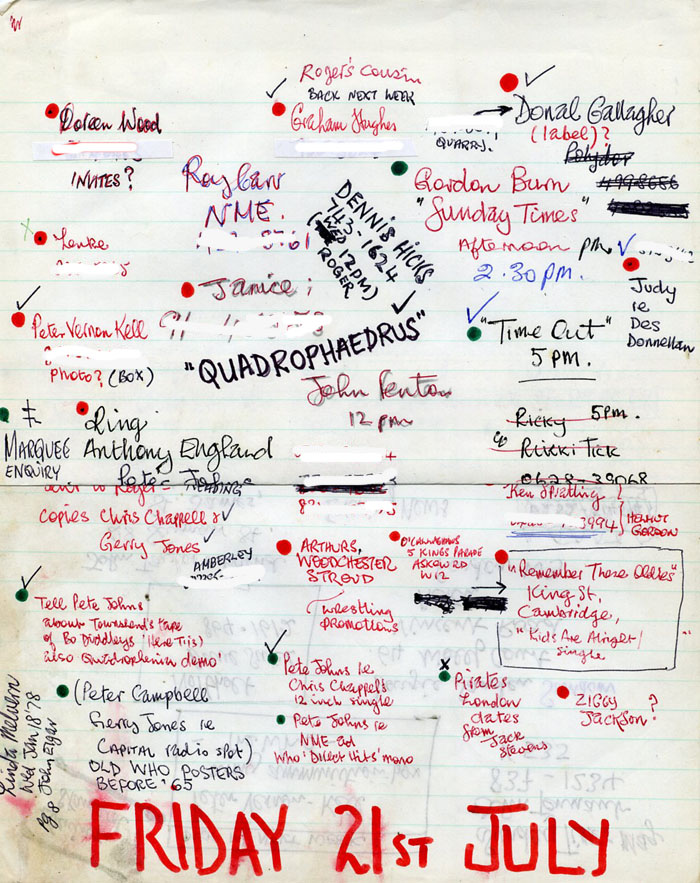 Roger's Cousin
BACK NEXT WEEK
Graham Hughes
Doreen Wood
INVITES?
Donal Gallagher
(label)?
Polydor
QUARRY.
Roy Carr
NME.
DENNIS HICKS
743-1624
(WED 12PM)
ROGER
Gordon Burn
"Sunday Times"
Afternoon pm
2.30pm.
Judy
ie
Des
Donnellan
Lenke
Janice:
Peter Vernon Kell
PHOTO? (BOX)
"QUADROPHAEDRUS"
"Time Out"
5 PM.
John Fenton
12 pm
Ricky 5pm.
Rikki Tick
0628-39068
MARQUEE
ENQUIRY
Ring
Anthony England
READING
copies Chris Chappell &
Gerry Jones
AMBERLEY
Ken Spratling
3994
HELMUT
GORDON
ARTHURS,
WOODCHESTER
STROUD
wrestling
promotions
O'CALLAGHANS
5 KINGS PARADE
ASKEW RD
W12
"Remember Those Oldies"
King St,
Cambridge,
"Kids Are Alright"
single
Tell Pete Johns
about Townsend's tape
of Bo Diddleys 'Here Tis)
also Quadrophenia demo!
Pete Johns ie
Chris Chappell
12 inch single
Pete Johns ie
NME ad
Who 'Direct Hits' mono
Pirates
London
dates
from
Jack
Stevens
ZIGGY
JACKSON?
(Peter Campbell
Gerry Jones ie
CAPITAL radio spot)
OLD WHO POSTERS
BEFORE '65
Linda
Wed Jan 18 78
John
837-1234
FRIDAY 21ST JULY